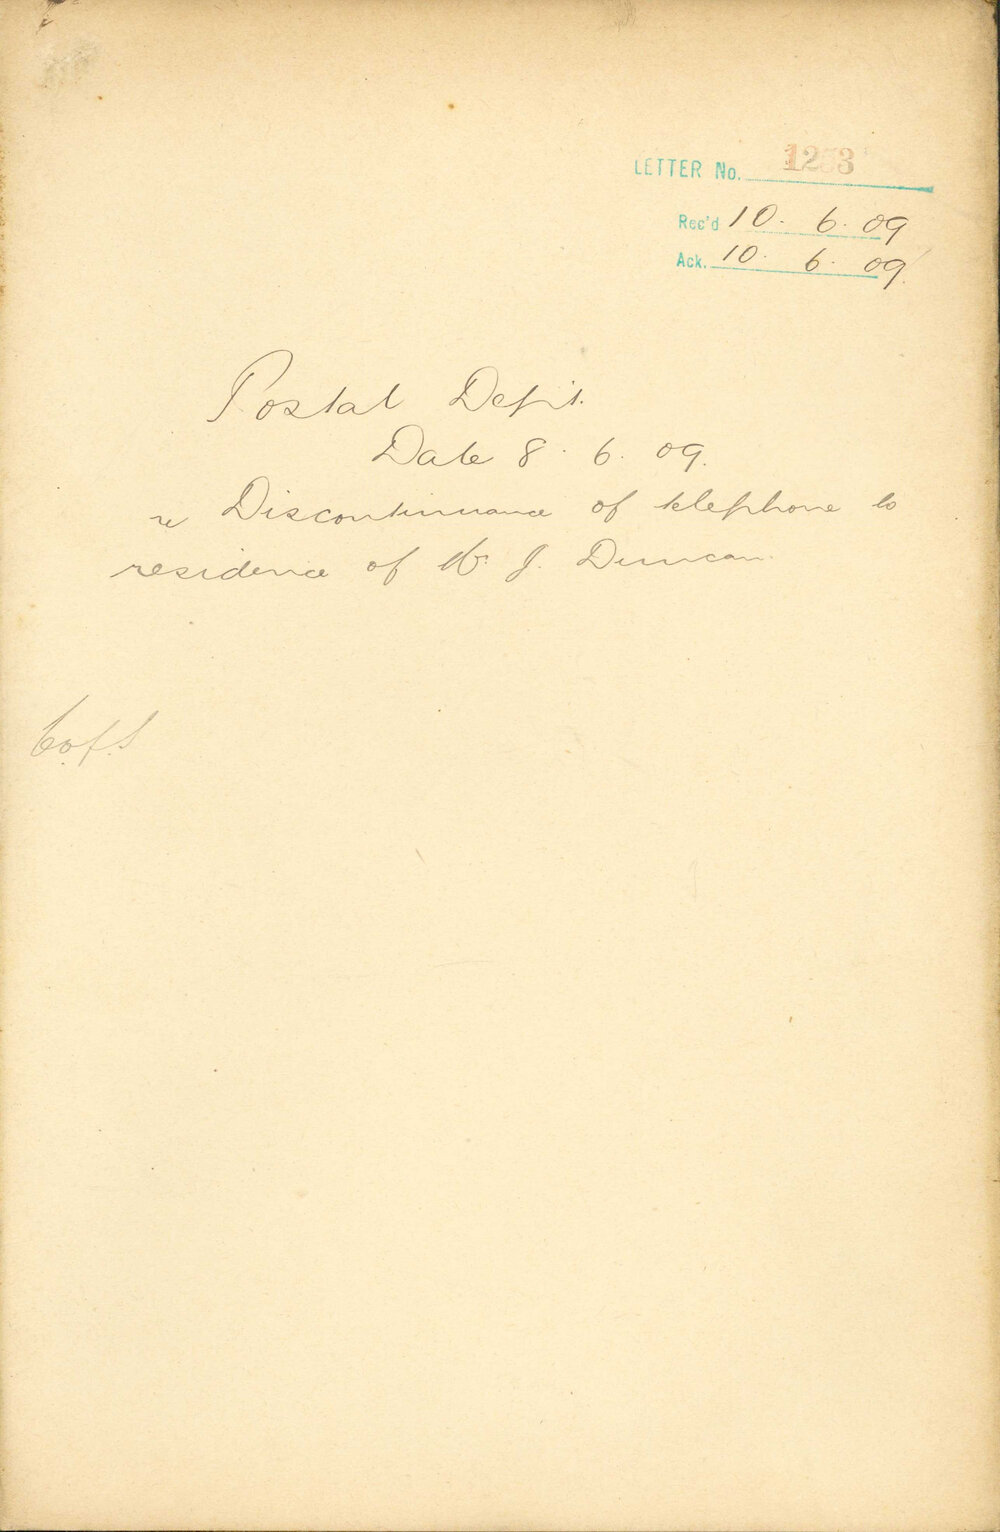 LETTER No. 1253
Rec'd 10. 6. 09
Ack. 10. 6. 09.
Postal Dep't.
Date 8. 6. 09.
re Discontinuance of telephone to
residence of W. J. Duncan.
C.of.S